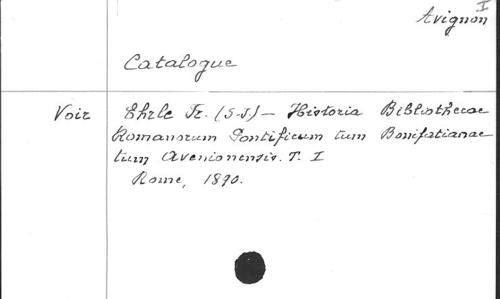 I
Avignon
Catalogue
Voir Ehrle Fr. (S.J.) — Historia Bibliothecae
Romanorum Pontificum tum Bonifatianae
tum Avenionensis. T. I
Rome, 1890.